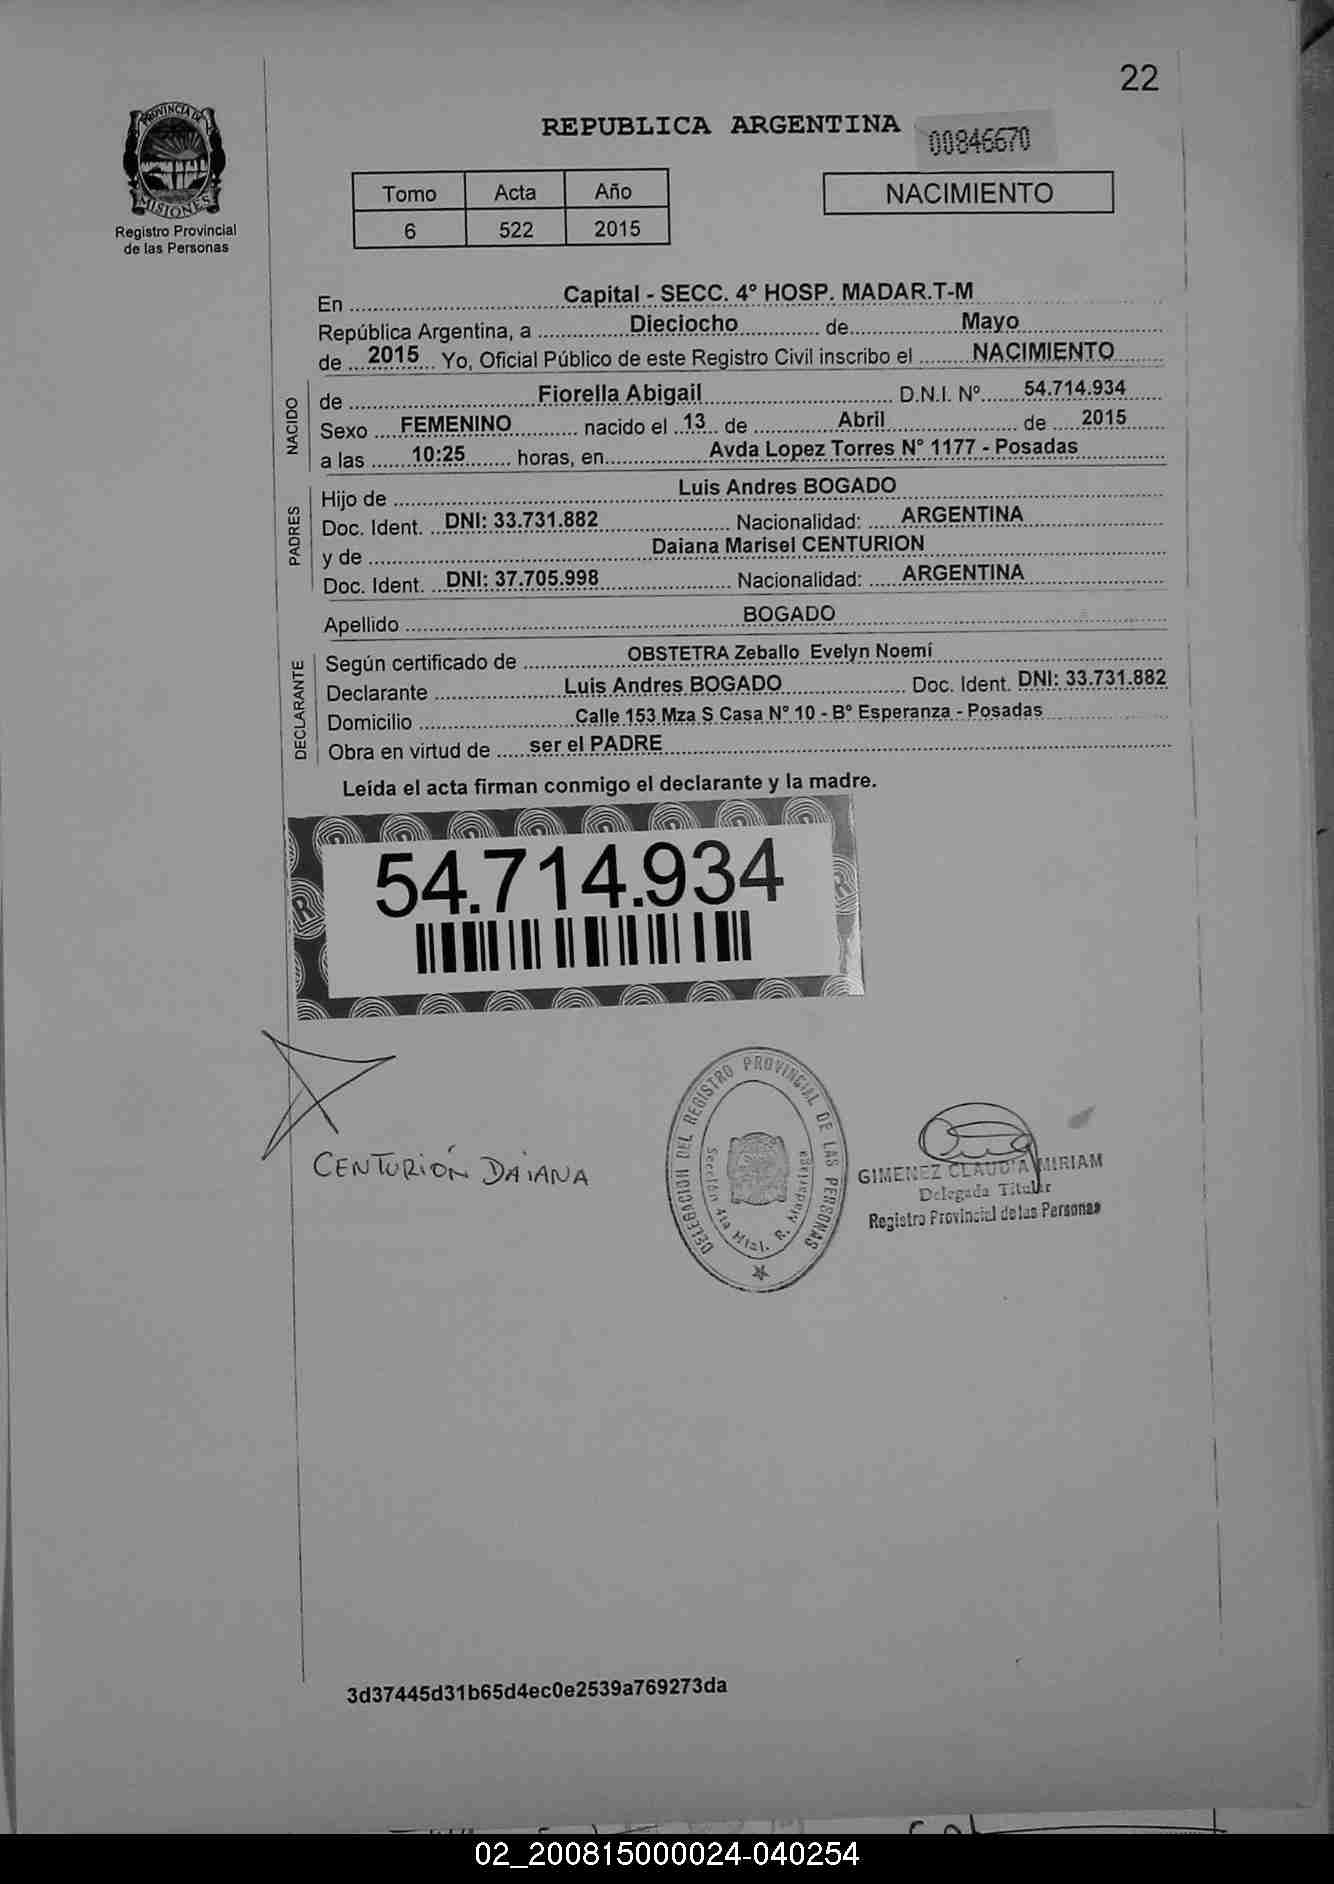 22
PROVINCIA DE
MISIONES
Registro Provincial
de las Personas
REPUBLICA ARGENTINA
00846670
Tomo Acta Año
6 522 2015
NACIMIENTO
En Capital - SECC. 4° HOSP. MADAR.T-M
República Argentina, a Dieciocho de Mayo
de 2015 Yo, Oficial Público de este Registro Civil inscribo el NACIMIENTO
NACIDO
de Fiorella Abigail D.N.I. N° 54.714.934
Sexo FEMENINO nacido el 13 de Abril de 2015
a las 10:25 horas, en Avda Lopez Torres N° 1177 - Posadas
PADRES
Hijo de Luis Andres BOGADO
Doc. Ident. DNI: 33.731.882 Nacionalidad: ARGENTINA
y de Daiana Marisel CENTURION
Doc. Ident. DNI: 37.705.998 Nacionalidad: ARGENTINA
Apellido BOGADO
DECLARANTE
Según certificado de OBSTETRA Zeballo Evelyn Noemí
Declarante Luis Andres BOGADO Doc. Ident. DNI: 33.731.882
Domicilio Calle 153 Mza S Casa N° 10 - B° Esperanza - Posadas
Obra en virtud de ser el PADRE
Leída el acta firman conmigo el declarante y la madre.
54.714.934
CENTURIÓN DAIANA
DELEGACION DEL REGISTRO PROVINCIAL DE LAS PERSONAS
Sección 4ta Htal. R. Madariaga
GIMENEZ CLAUDIA MIRIAM
Delegada Titular
Registro Provincial de las Personas
3d37445d31b65d4ec0e2539a769273da
02_200815000024-040254